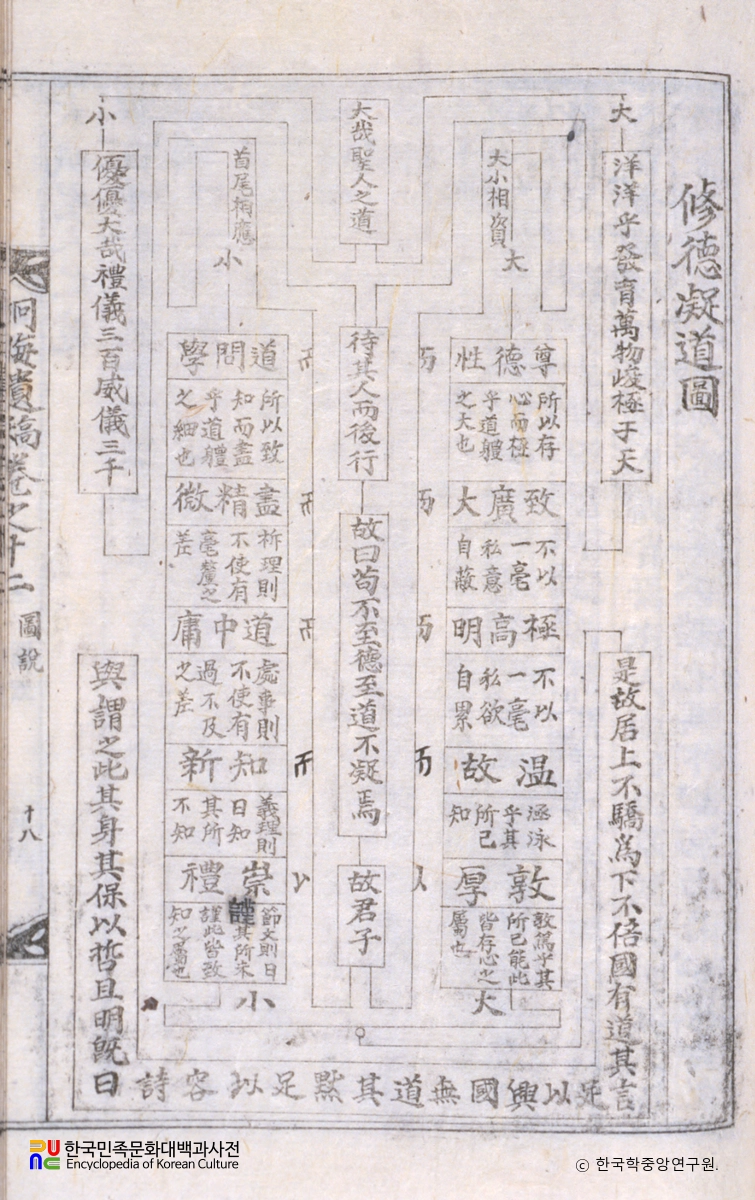 修德凝道圖
大
洋洋乎發育萬物峻極于天
是故居上不驕爲下不倍國有道其言
足以興國無道其默足以容詩
曰旣明且哲以保其身其此之謂與
大小相資
大
尊德性
所以存
心而極
乎道體
之大也
致廣大
不以
一毫
私意
自蔽
極高明
不以
一毫
私欲
自累
温故
涵泳
乎其
所已
知
敦厚
敦篤乎其
所已能此
皆存心之
屬也
大
大哉聖人之道
待其人而後行
故曰苟不至德至道不凝焉
故君子
首尾相應
小
道問學
所以致
知而盡
乎道體
之細也
盡精微
析理則
不使有
毫釐之
差
道中庸
處事則
不使有
過不及
之差
知新
義理則
日知
其所
不知
崇禮
節文則日
謹其所未
謹此皆致
知之屬也
小
小
優優大哉禮儀三百威儀三千
海遺稿卷之十二
圖說
十八
한국민족문화대백과사전
Encyclopedia of Korean Culture
© 한국학중앙연구원.